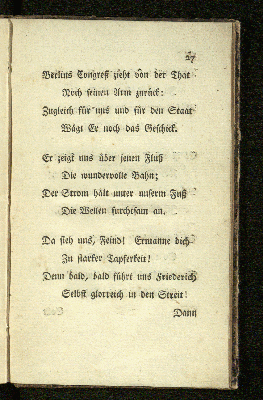 27
Berlins Congreß zieht von der That
Noch seinen Arm zurück:
Zugleich für uns und für den Staat
Wägt Er noch das Geschick.
Er zeigt uns über jenen Fluß
Die wundervolle Bahn;
Der Strom hält unter unserm Fuß
Die Wellen furchtsam an.
Da sieh uns, Feind! Ermanne dich
Zu starker Tapferkeit!
Denn bald, bald führt uns Friederich
Selbst glorreich in den Streit!
Dann